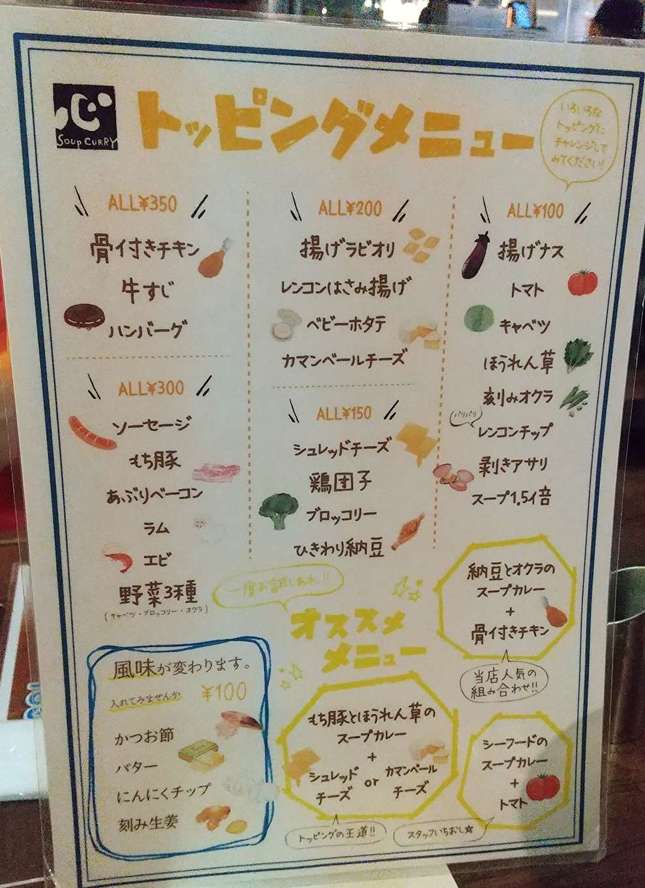 心
SOUP CURRY
トッピングメニュー
いろいろな
トッピングに
チャレンジして
みてください!!
ALL¥350
骨付きチキン
牛すじ
ハンバーグ
ALL¥300
ソーセージ
もち豚
あぶりベーコン
ラム
エビ
野菜3種
(キャベツ・ブロッコリー・オクラ)
ALL¥200
揚げラビオリ
レンコンはさみ揚げ
ベビーホタテ
カマンベールチーズ
ALL¥150
シュレッドチーズ
鶏団子
ブロッコリー
ひきわり納豆
ALL¥100
揚げナス
トマト
キャベツ
ほうれん草
刻みオクラ
パリパリ
レンコンチップ
剥きアサリ
スープ1.5倍
風味が変わります。
入れてみませんか
¥100
かつお節
バター
にんにくチップ
刻み生姜
一度お試しあれ!!
オススメ
メニュー
納豆とオクラの
スープカレー
+
骨付きチキン
当店人気の
組み合わせ!!
もち豚とほうれん草の
スープカレー
+
シュレッド
チーズ
or
カマンベール
チーズ
トッピングの王道!!
シーフードの
スープカレー
+
トマト
スタッフいちおし☆